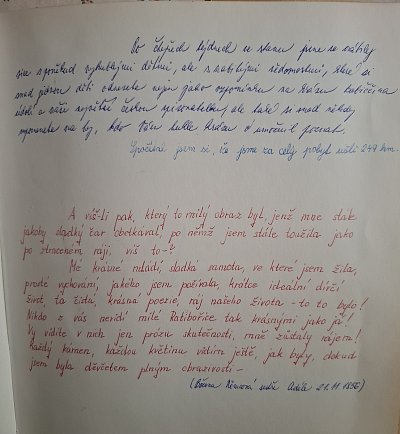 Po čtyřech týdnech se stanu jsme se vrátily
sice s poněkud vyhublými dětmi, ale s nabytými vědomostmi, které si
snad jednou děti obnovte nejen jako vzpomínku na Vašeni babičkina
údolí a vaši největší českou spisovatelku, ale také si snad někdy
vzpomenete na ty, kdo Vám tuhle krásu umožnil poznat.
Spočítali jsem si, že jsme za celý pobyt ušli 249 km.
A víš-li pak, který to milý obraz byl, jenž mne stále
jakoby sladký čar obetkával, po němž jsem stále toužila jako
po ztraceném ráji, víš to-?
Mé krásné mládí, sladká samota, ve které jsem žila,
prosté vychování, jakého jsem požívala, krátce ideální dívčí
život, ta čistá, krásná poezie, ráj našeho života - to to bylo!
Nikdo z vás nevidí milé Ratibořice tak krásnými jako já!
Vy vidíte v nich jen prózu skutečnosti, mně zůstaly rájem!
Každý kámen, každou květinu vidím ještě, jak byly, dokud
jsem byla děvčetem plným obrazivosti -
(Božena Němcová sestře Adéle 21.11.1856)